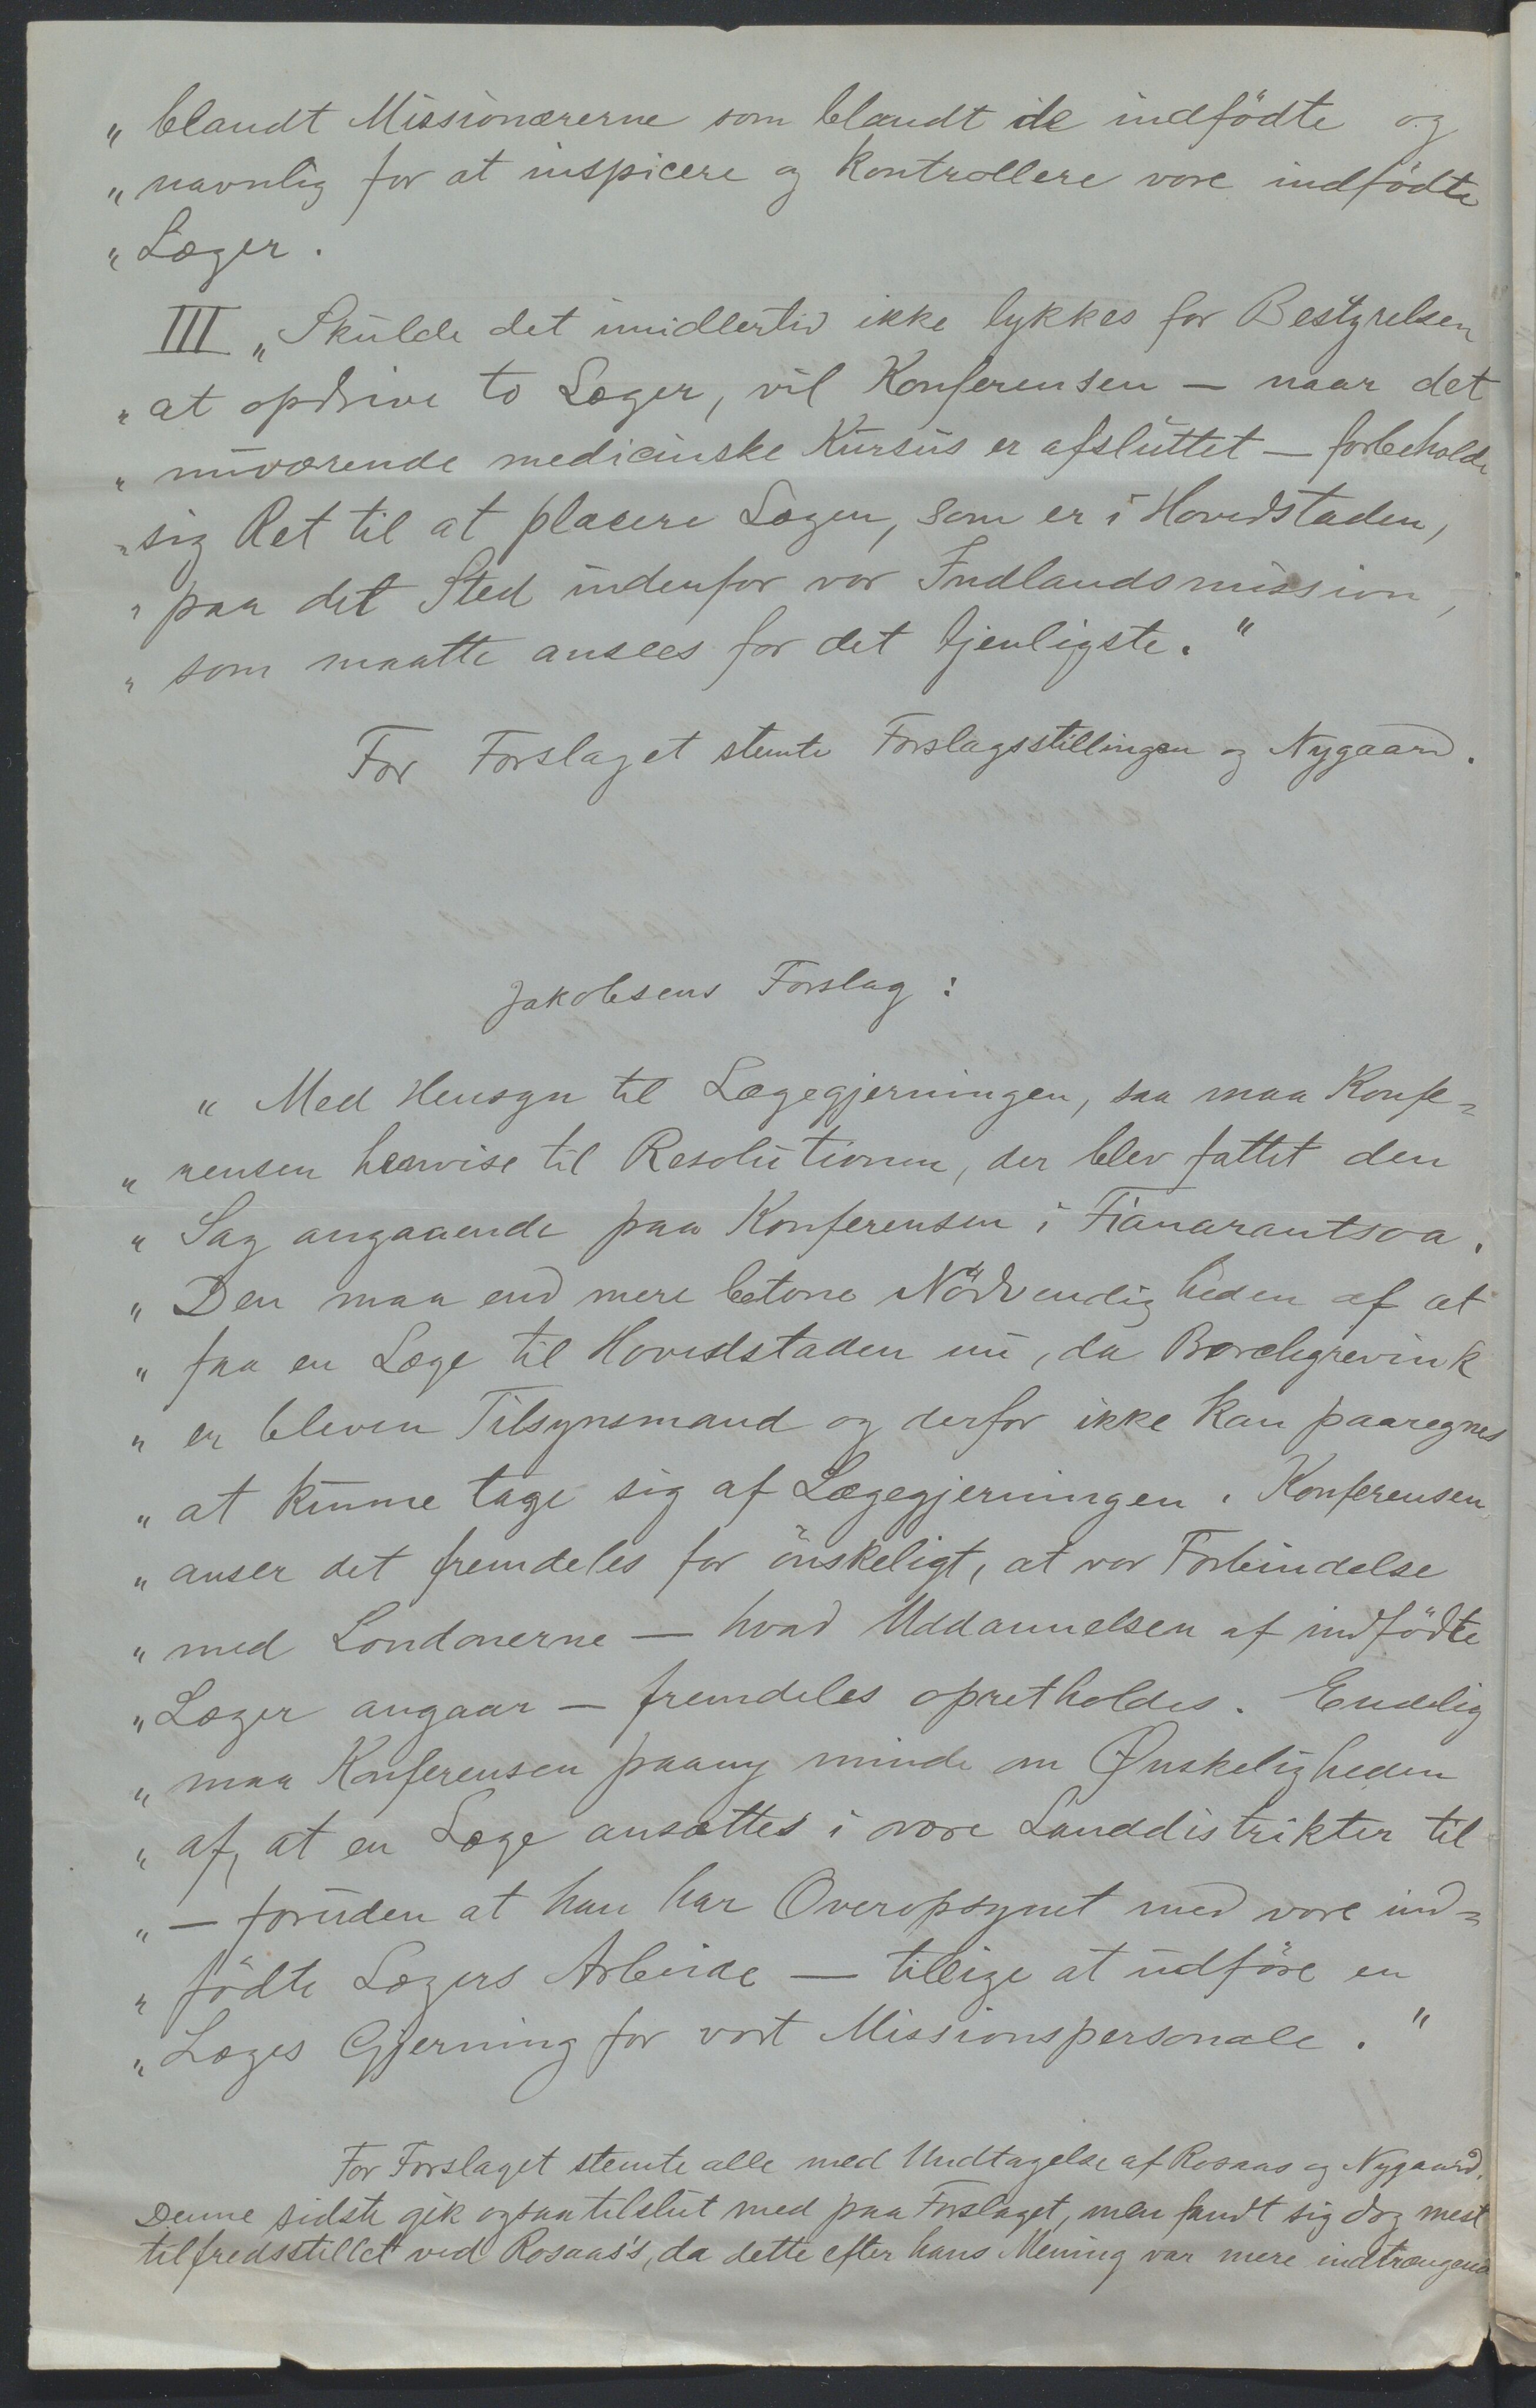 „ blandt Missionærerne som blandt de indfödte og
„ navnlig for at inspicere og kontrollere vore indfödte
„ Læger.
III „ Skulde det imidlertid ikke lykkes for Bestyrelsen
„ at opdrive to Læger, vil Konferensen — naar det
„ nuværende medicinske Kursus er afsluttet — forbeholde
„ sig Ret til at placere Lægen, som er i Hovedstaden,
„ paa det Sted indenfor vor Indlandsmission,
„ som maatte ansees for det tjenligste."
For Forslaget stemte Forslagsstillingen og Nygaard.
Jakobsens Forslag:
„ Med Hensyn til Lægegjerningen, saa maa Konfe=
„ rensen henvise til Resolutionen, der blev fattet den
„ Sag angaaende paa Konferensen i Fianarantsoa.
„ Den maa end mere betone Nödvendigheden af at
„ faa en Læge til Hovedstaden nu, da Borchgrevink
„ er bleven Tilsynsmand og derfor ikke kan paaregnes
„ at kunne tage sig af Lægegjerningen. Konferensen
„ anser det fremdeles for önskeligt, at vor Forbindelse
„ med Londonerne — hvad Uddannelsen af indfödte
„ Læger angaar — fremdeles opretholdes. Endelig
„ maa Konferensen paany minde om Ønskeligheden
„ af, at en Læge ansættes i vore Landdistrikter til
„ — foruden at han har Overopsynet med vore ind=
„ födte Lægers Arbeide — tillige at udföre en
„ Læges Gjerning for vort Missionspersonale."
For Forslaget stemte alle med Undtagelse af Rosaas og Nygaard.
Denne sidste gik ogsaa tilslut med paa Forslaget, men fandt sig dog mest
tilfredsstillet ved Rosaas's, da dette efter hans Mening var mere indtrængende